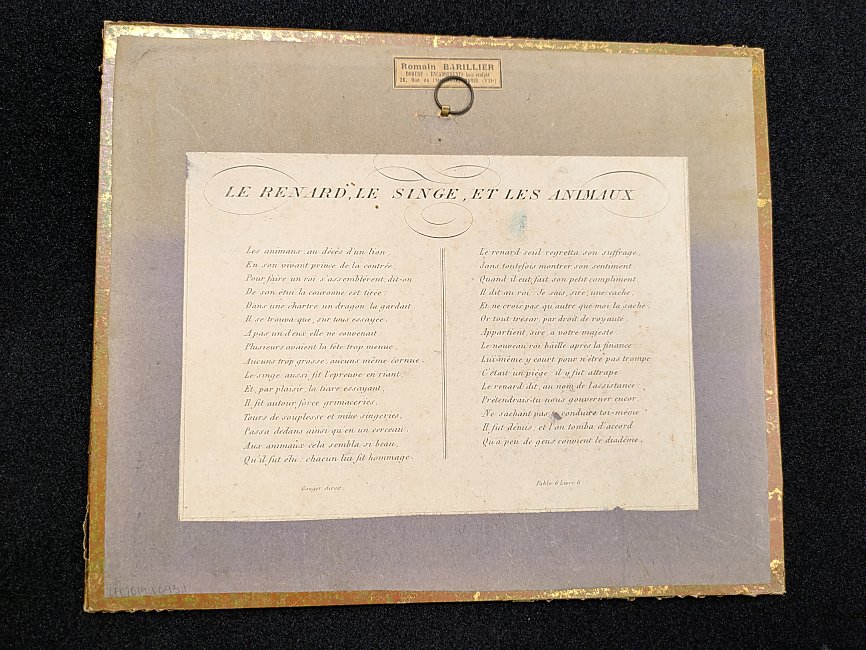 Romain BARILLIER
DOREUR - ENCADREMENTS bois sculpté
LE RENARD, LE SINGE, ET LES ANIMAUX
Les animaux, au décès d'un lion,
En son vivant prince de la contrée,
Pour faire un roi s'assemblèrent, dit-on
De son étui la couronne est tirée:
Dans une chartre un dragon la gardait
Il se trouva que, sur tous essayée,
A pas un d'eux elle ne convenait
Plusieurs avaient la tête trop menue,
Aucuns trop grosse, aucuns même cornue.
Le singe aussi fit l'épreuve en riant;
Et, par plaisir, la tiare essayant,
Il fit autour force grimaceries,
Tours de souplesse et mille singeries,
Passa dedans ainsi qu'en un cerceau.
Aux animaux cela sembla si beau,
Qu'il fut élu: chacun lui fit hommage.
Le renard seul regretta son suffrage,
Sans toutefois montrer son sentiment.
Quand il eut fait son petit compliment
Il dit au roi: Je sais, sire, une cache,
Et ne crois pas qu'autre que moi la sache.
Or tout trésor, par droit de royauté,
Appartient, sire, à votre majesté
Le nouveau roi bâille après la finance:
Lui-même y court pour n'être pas trompé
C'était un piége: il y fut attrapé
Le renard dit, au nom de l'assistance:
Prétendrais-tu nous gouverner encor,
Ne sachant pas te conduire toi-même?
Il fut démis, et l'on tomba d'accord
Qu'à peu de gens convient le diadême.
Gouget direx.
Fable 6 Livre 6